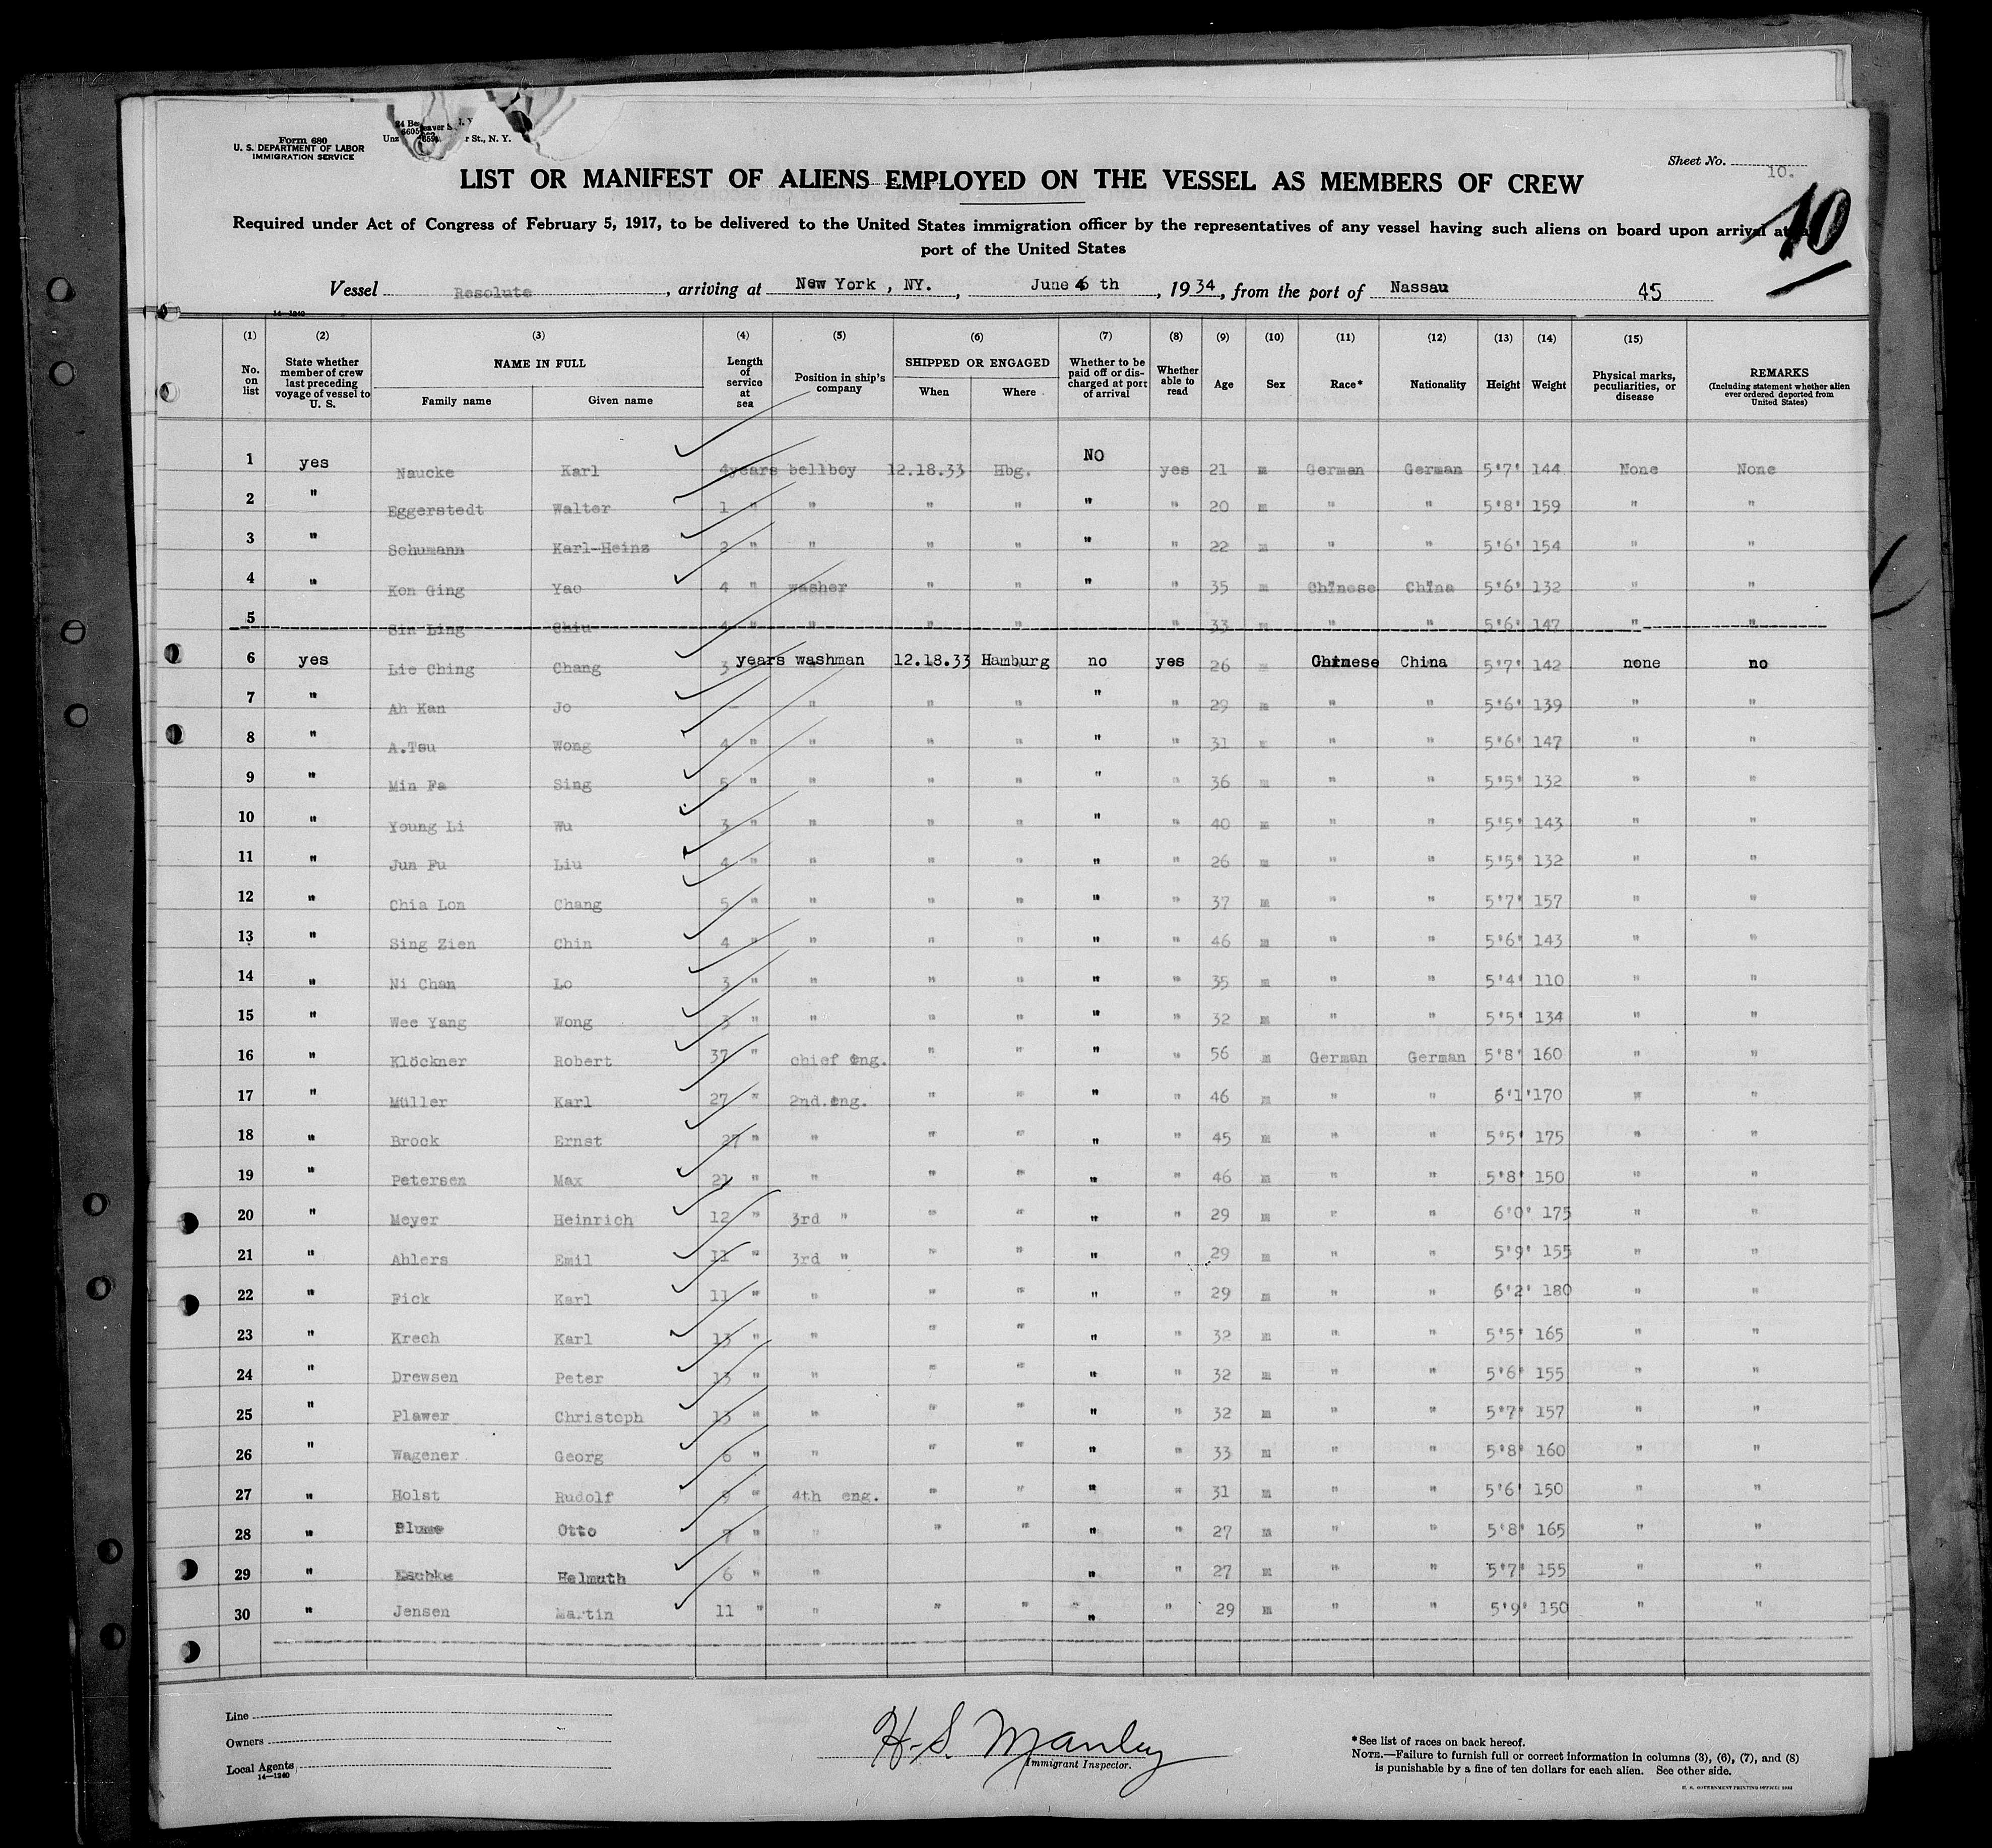 Form 680
U. S. DEPARTMENT OF LABOR
IMMIGRATION SERVICE
St., N. Y.
Sheet No. 10.
10
LIST OR MANIFEST OF ALIENS EMPLOYED ON THE VESSEL AS MEMBERS OF CREW
Required under Act of Congress of February 5, 1917, to be delivered to the United States immigration officer by the representatives of any vessel having such aliens on board upon arrival at a
port of the United States
Vessel Resolute, arriving at New York, NY., June 6 th, 1934, from the port of Nassau 45
14—1240
(1) (2) (3) (4) (5) (6) (7) (8) (9) (10) (11) (12) (13) (14) (15)
No. on list | State whether member of crew last preceding voyage of vessel to U. S. | NAME IN FULL Family name Given name | Length of service at sea | Position in ship's company | SHIPPED OR ENGAGED When Where | Whether to be paid off or discharged at port of arrival | Whether able to read | Age | Sex | Race* | Nationality | Height | Weight | Physical marks, peculiarities, or disease | REMARKS (Including statement whether alien ever ordered deported from United States)
1 yes Naucke Karl 4years bellboy 12.18.33 Hbg. NO yes 21 m German German 5'7' 144 None None
2 " Eggerstedt Walter 1 " " " " " " 20 m " " 5'8' 159 " "
3 " Schumann Karl-Heinz 2 " " " " " " 22 m " " 5'6' 154 " "
4 " Kon Ging Yao 4 " washer " " " " 35 m Chinese China 5'6' 132 " "
5 Sin Ling Chiu 4 " " " " " 33 m " " 5'6' 147 " "
6 yes Lie Ching Chang 3 years washman 12.18.33 Hamburg no yes 26 m Chinese China 5'7' 142 none no
7 " Ah Kan Jo - " " " " " 29 m " " 5'6' 139 " "
8 " A.Tsu Wong 4 " " " " " " 31 m " " 5'6' 147 " "
9 " Min Fa Sing 5 " " " " " " 36 m " " 5'5' 132 " "
10 " Young Li Wu 3 " " " " " " 40 m " " 5'5' 143 " "
11 " Jun Fu Liu 4 " " " " " " 26 m " " 5'5' 132 " "
12 " Chia Lon Chang 5 " " " " " " 37 m " " 5'7' 157 " "
13 " Sing Zien Chin 4 " " " " " " 46 m " " 5'6' 143 " "
14 " Ni Chan Lo 3 " " " " " " 35 m " " 5'4' 110 " "
15 " Wee Yang Wong 3 " " " " " " 32 m " " 5'5' 134 " "
16 " Klöckner Robert 37 " chief eng. " " " " 56 m German German 5'8' 160 " "
17 " Müller Karl 27 " 2nd.eng. " " " " 46 m " " 6'1' 170 " "
18 " Brock Ernst 27 " " " " " " 45 m " " 5'5' 175 " "
19 " Petersen Max 21 " " " " " " 46 m " " 5'8' 150 " "
20 " Meyer Heinrich 12 " 3rd " " " " " 29 m " " 6'0' 175 " "
21 " Ahlers Emil 11 " 3rd " " " " " 29 m " " 5'9' 155 " "
22 " Fick Karl 11 " " " " " " 29 m " " 6'2' 180 " "
23 " Krech Karl 13 " " " " " " 32 m " " 5'5' 165 " "
24 " Drewsen Peter 13 " " " " " " 32 m " " 5'6' 155 " "
25 " Plawer Christoph 13 " " " " " " 32 m " " 5'7' 157 " "
26 " Wagener Georg 6 " " " " " " 33 m " " 5'8' 160 " "
27 " Holst Rudolf 9 " 4th eng. " " " " 31 m " " 5'6' 150 " "
28 " Blume Otto 7 " " " " " " 27 m " " 5'8' 165 " "
29 " Eschke Helmuth 6 " " " " 27 m " " 5'7' 155 " "
30 " Jensen Martin 11 " " " " " " 29 m " " 5'9' 150 " "
Line
Owners
Local Agents
14—1240
H. S. Manley
Immigrant Inspector.
*See list of races on back hereof.
NOTE.—Failure to furnish full or correct information in columns (3), (6), (7), and (8)
is punishable by a fine of ten dollars for each alien. See other side.